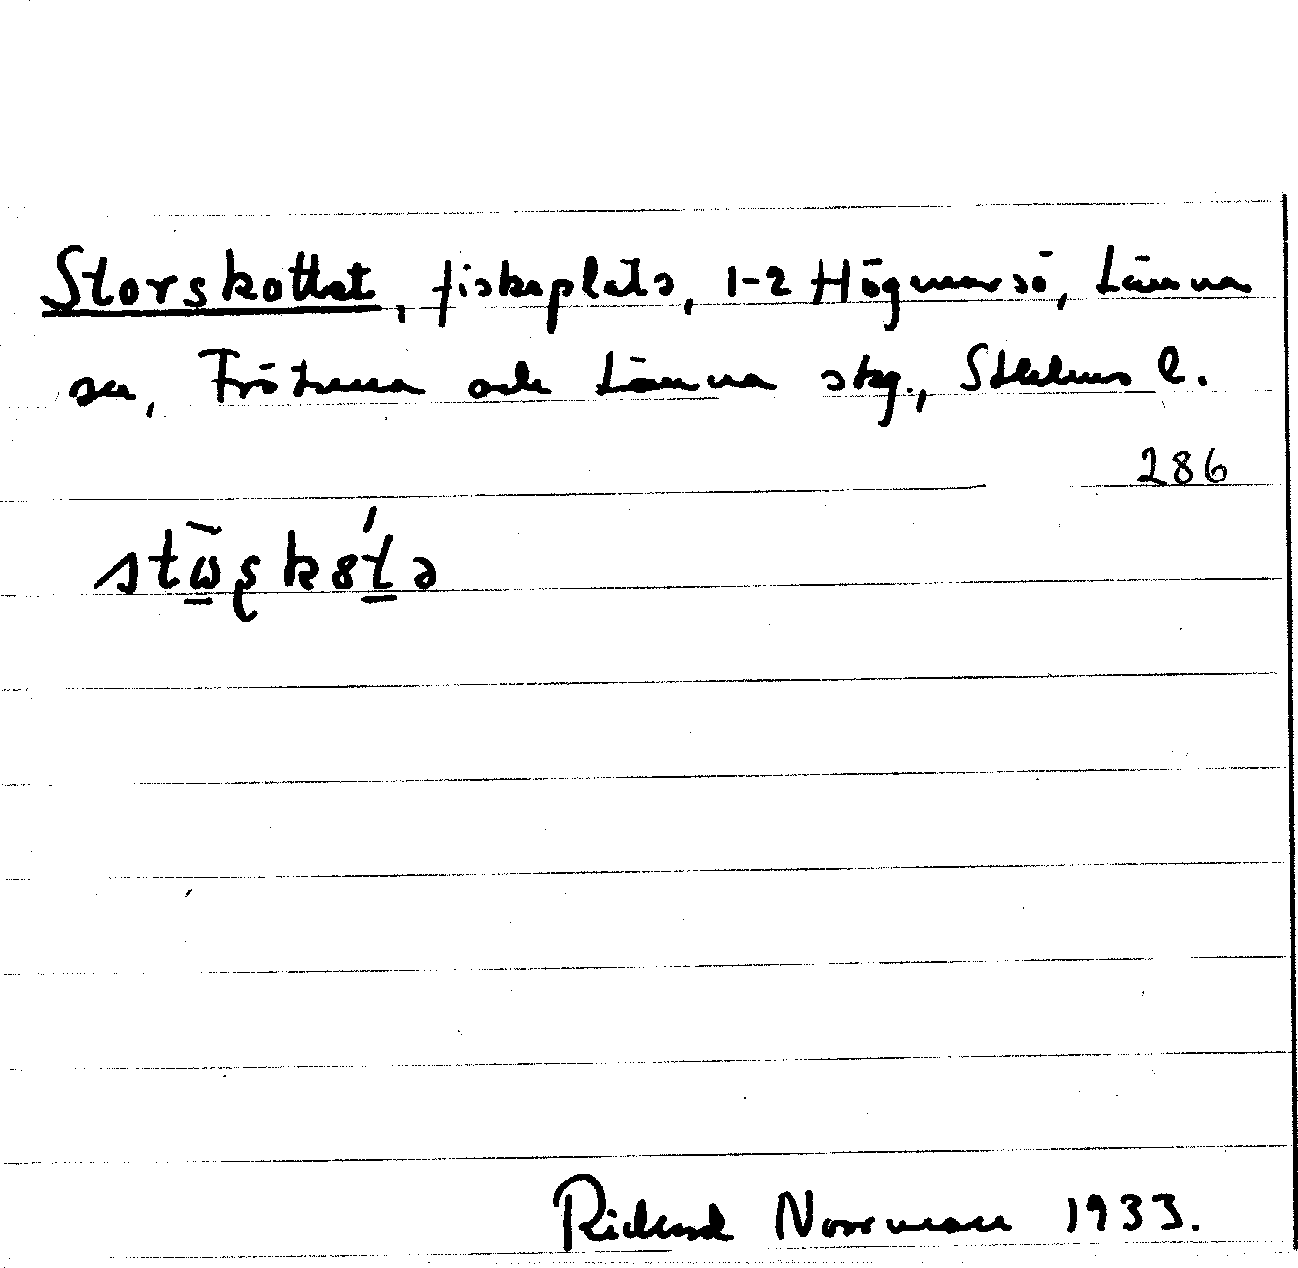 Storskottet, fiskeplats, 1-2 Högmarsö, Länna
sn, Frötuna och Länna skg., Sthlms l.
286
stω̠̃ʂkȣt̠́ə
Rickard Norrman 1933.